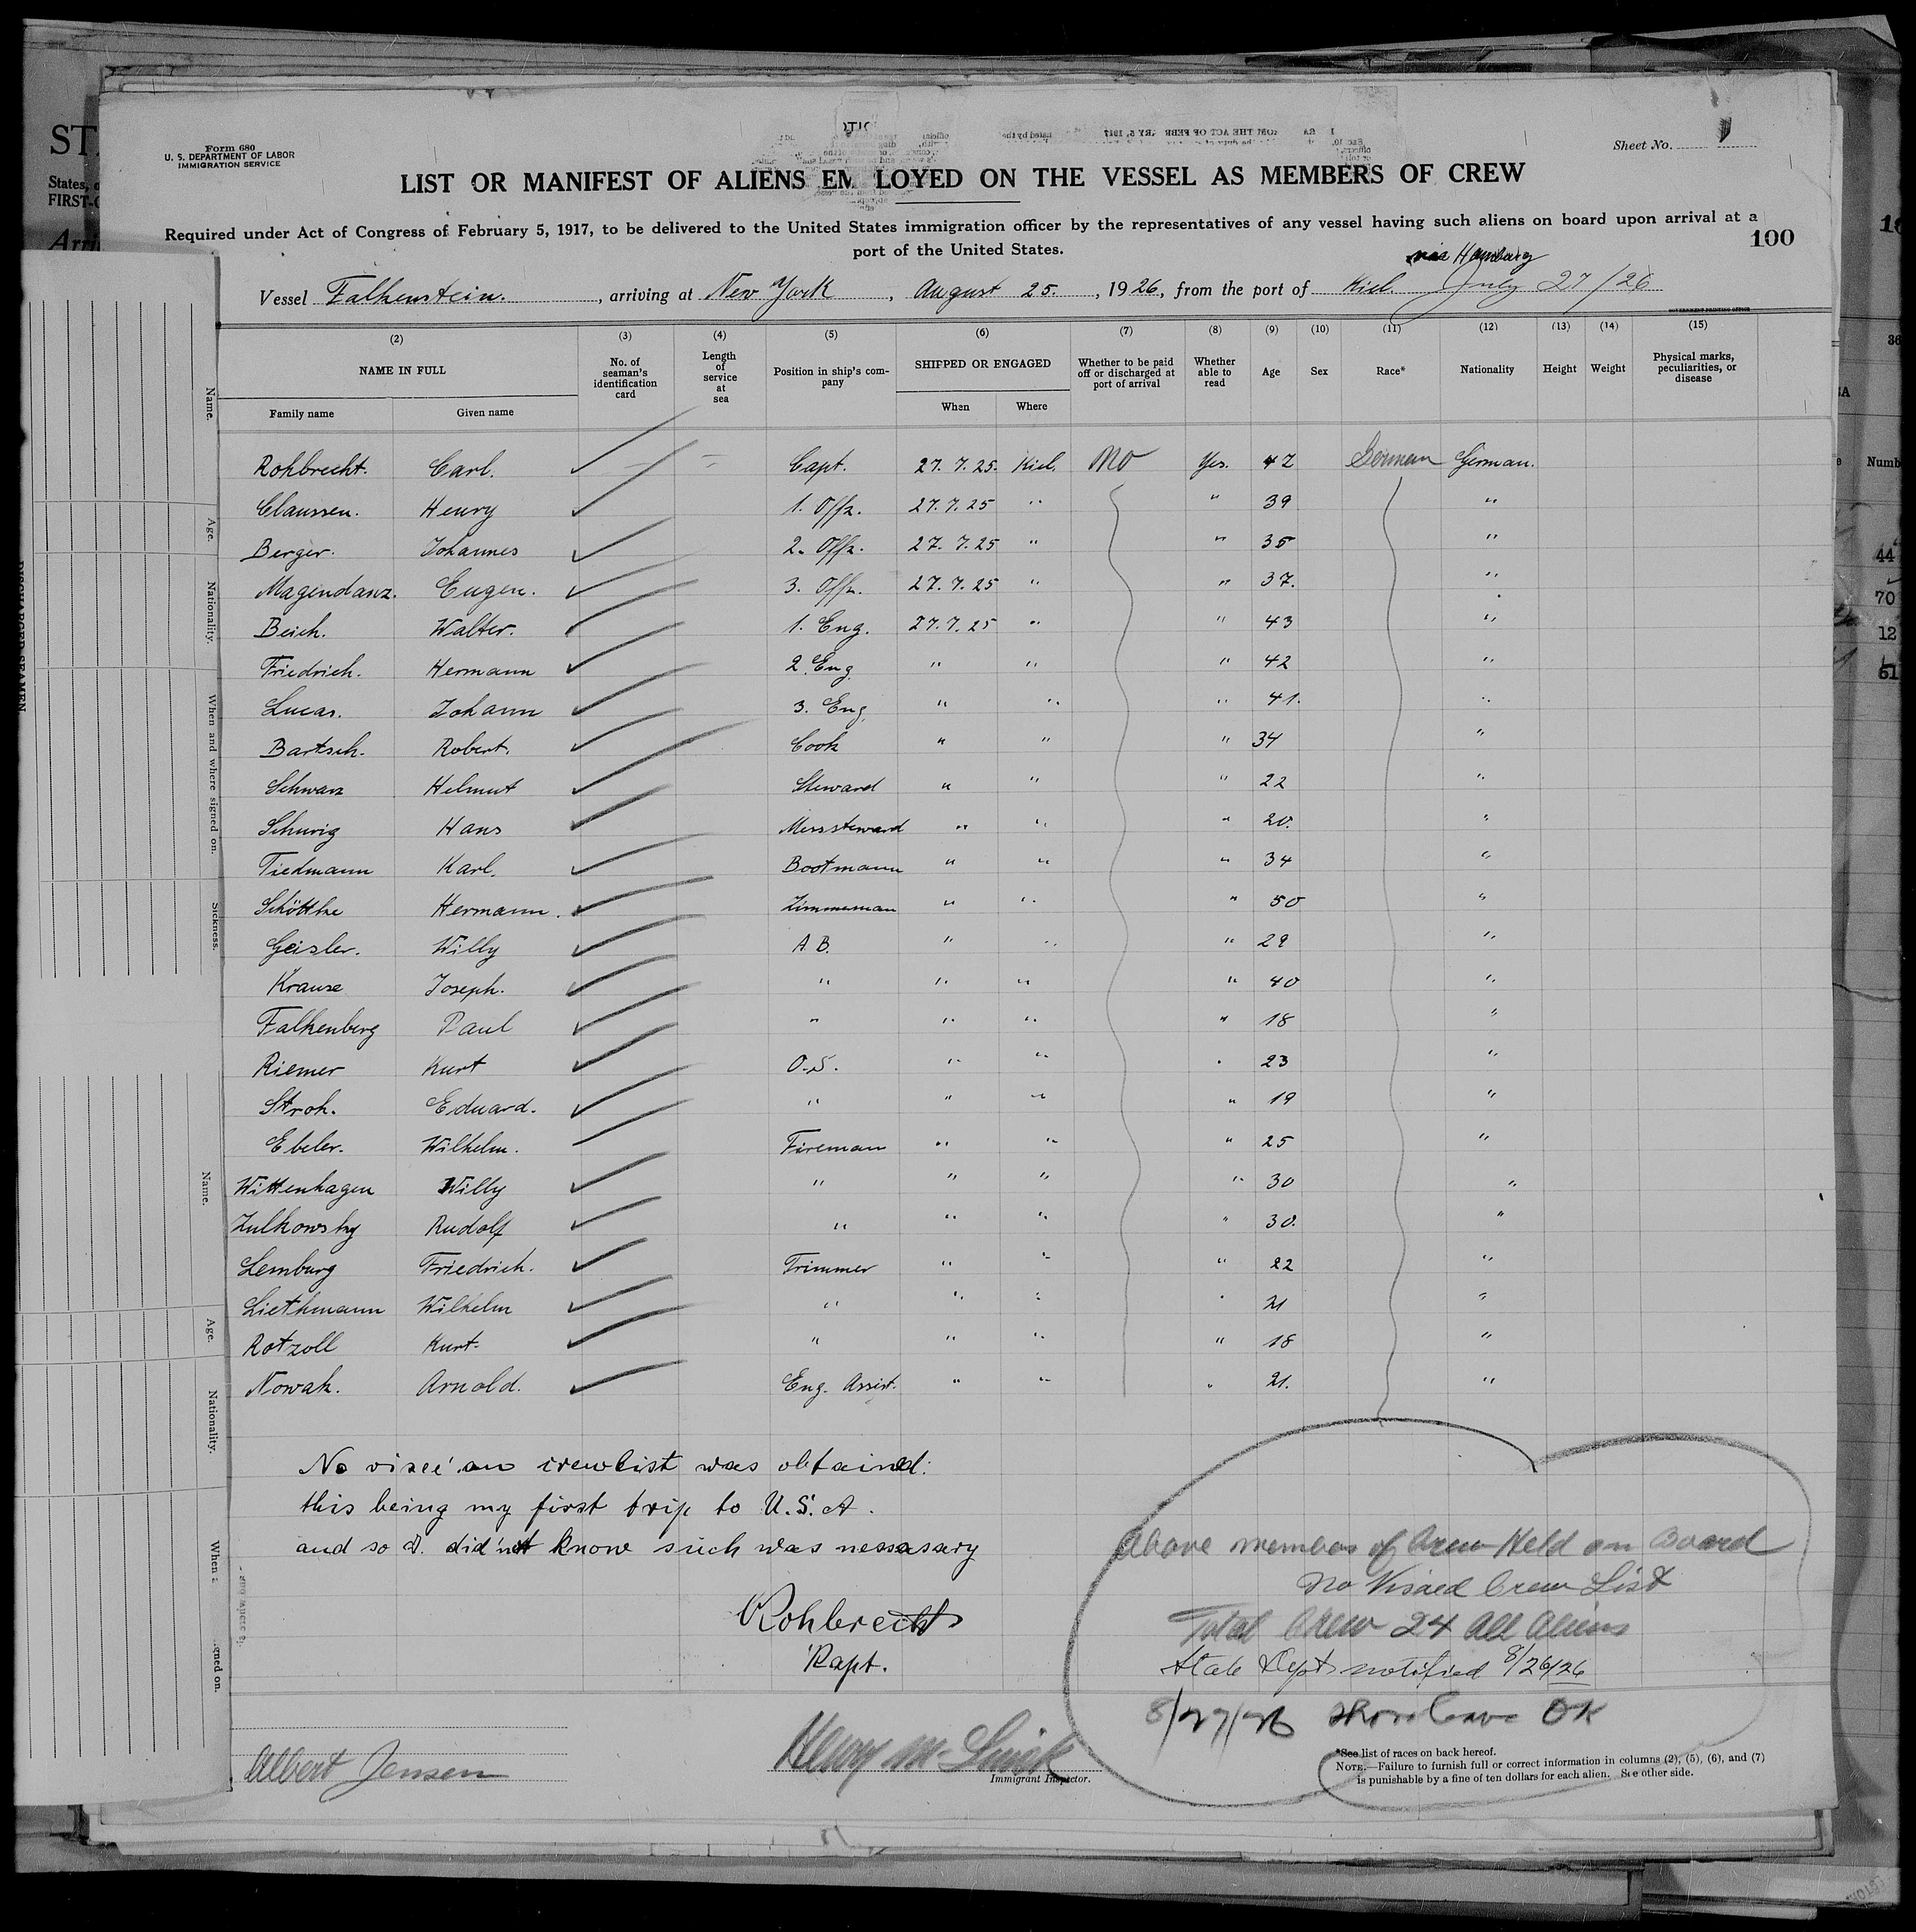 Form 680
U. S. DEPARTMENT OF LABOR
IMMIGRATION SERVICE
Sheet No.
LIST OR MANIFEST OF ALIENS EM LOYED ON THE VESSEL AS MEMBERS OF CREW
Required under Act of Congress of February 5, 1917, to be delivered to the United States immigration officer by the representatives of any vessel having such aliens on board upon arrival at a
port of the United States.
100
via Hamburg
Vessel Falkenstein. , arriving at New York , August 25. , 1926, from the port of Kiel. July 27/26
(2) (3) (4) (5) (6) (7) (8) (9) (10) (11) (12) (13) (14) (15)
NAME IN FULL No. of seaman's identification card Length of service at sea Position in ship's company SHIPPED OR ENGAGED Whether to be paid off or discharged at port of arrival Whether able to read Age Sex Race* Nationality Height Weight Physical marks, peculiarities, or disease
Family name Given name When Where
Rohbrecht. Carl. Capt. 27. 7. 25. Kiel. No Yes. 42 German German.
Claussen. Henry 1. Offz. 27. 7. 25 " " 39 "
Berger. Johannes 2. Offz. 27. 7. 25 " " 35 "
Magendanz. Eugen. 3. Offz. 27. 7. 25 " " 37. "
Beich. Walter. 1. Eng. 27. 7. 25 " " 43 "
Friedrich. Hermann 2. Eng. " " " 42 "
Lucas. Johann 3. Eng. " " " 41. "
Bartsch. Robert. Cook " " " 34 "
Schwarz Helmut Steward " " " 22 "
Schurig Hans Messsteward " " " 20. "
Tiedmann Karl. Bootmann " " " 34 "
Schöttke Hermann. Zimmerman " " " 50 "
Geisler. Willy A. B. " " " 29 "
Krause Joseph. " " " " 40 "
Falkenberg Paul " " " " 18 "
Riemer Kurt O.S. " " " 23 "
Stroh. Eduard. " " " " 19 "
Ebeler. Wilhelm. Fireman " " " 25 "
Wittenhagen Willy " " " " 30 "
Zulkowsky Rudolf " " " " 30. "
Lemburg Friedrich. Trimmer " " " 22 "
Liethmann Wilhelm " " " " 21 "
Rotzoll Kurt. " " " " 18 "
Nowak. Arnold. Eng. Assist. " " " 21. "
No viseé on crewlist was obtained:
this being my first trip to U.S.A.
and so I. did'nt know such was nessasary
Rohbrecht
Kapt.
Above members of Crew Held on Board
No Visaed Crew List
Total Crew 24 All Aliens
State Dept notified 8/26/26
8/27/26 Shore leave OK
Albert Jensen
Immigrant Inspector.
*See list of races on back hereof.
NOTE.—Failure to furnish full or correct information in columns (2), (5), (6), and (7)
is punishable by a fine of ten dollars for each alien. See other side.
Name.
Age.
Nationality.
When and where signed on.
Sickness.
Name.
Age.
Nationality.
When
States,
FIRST-
44
70
12
51